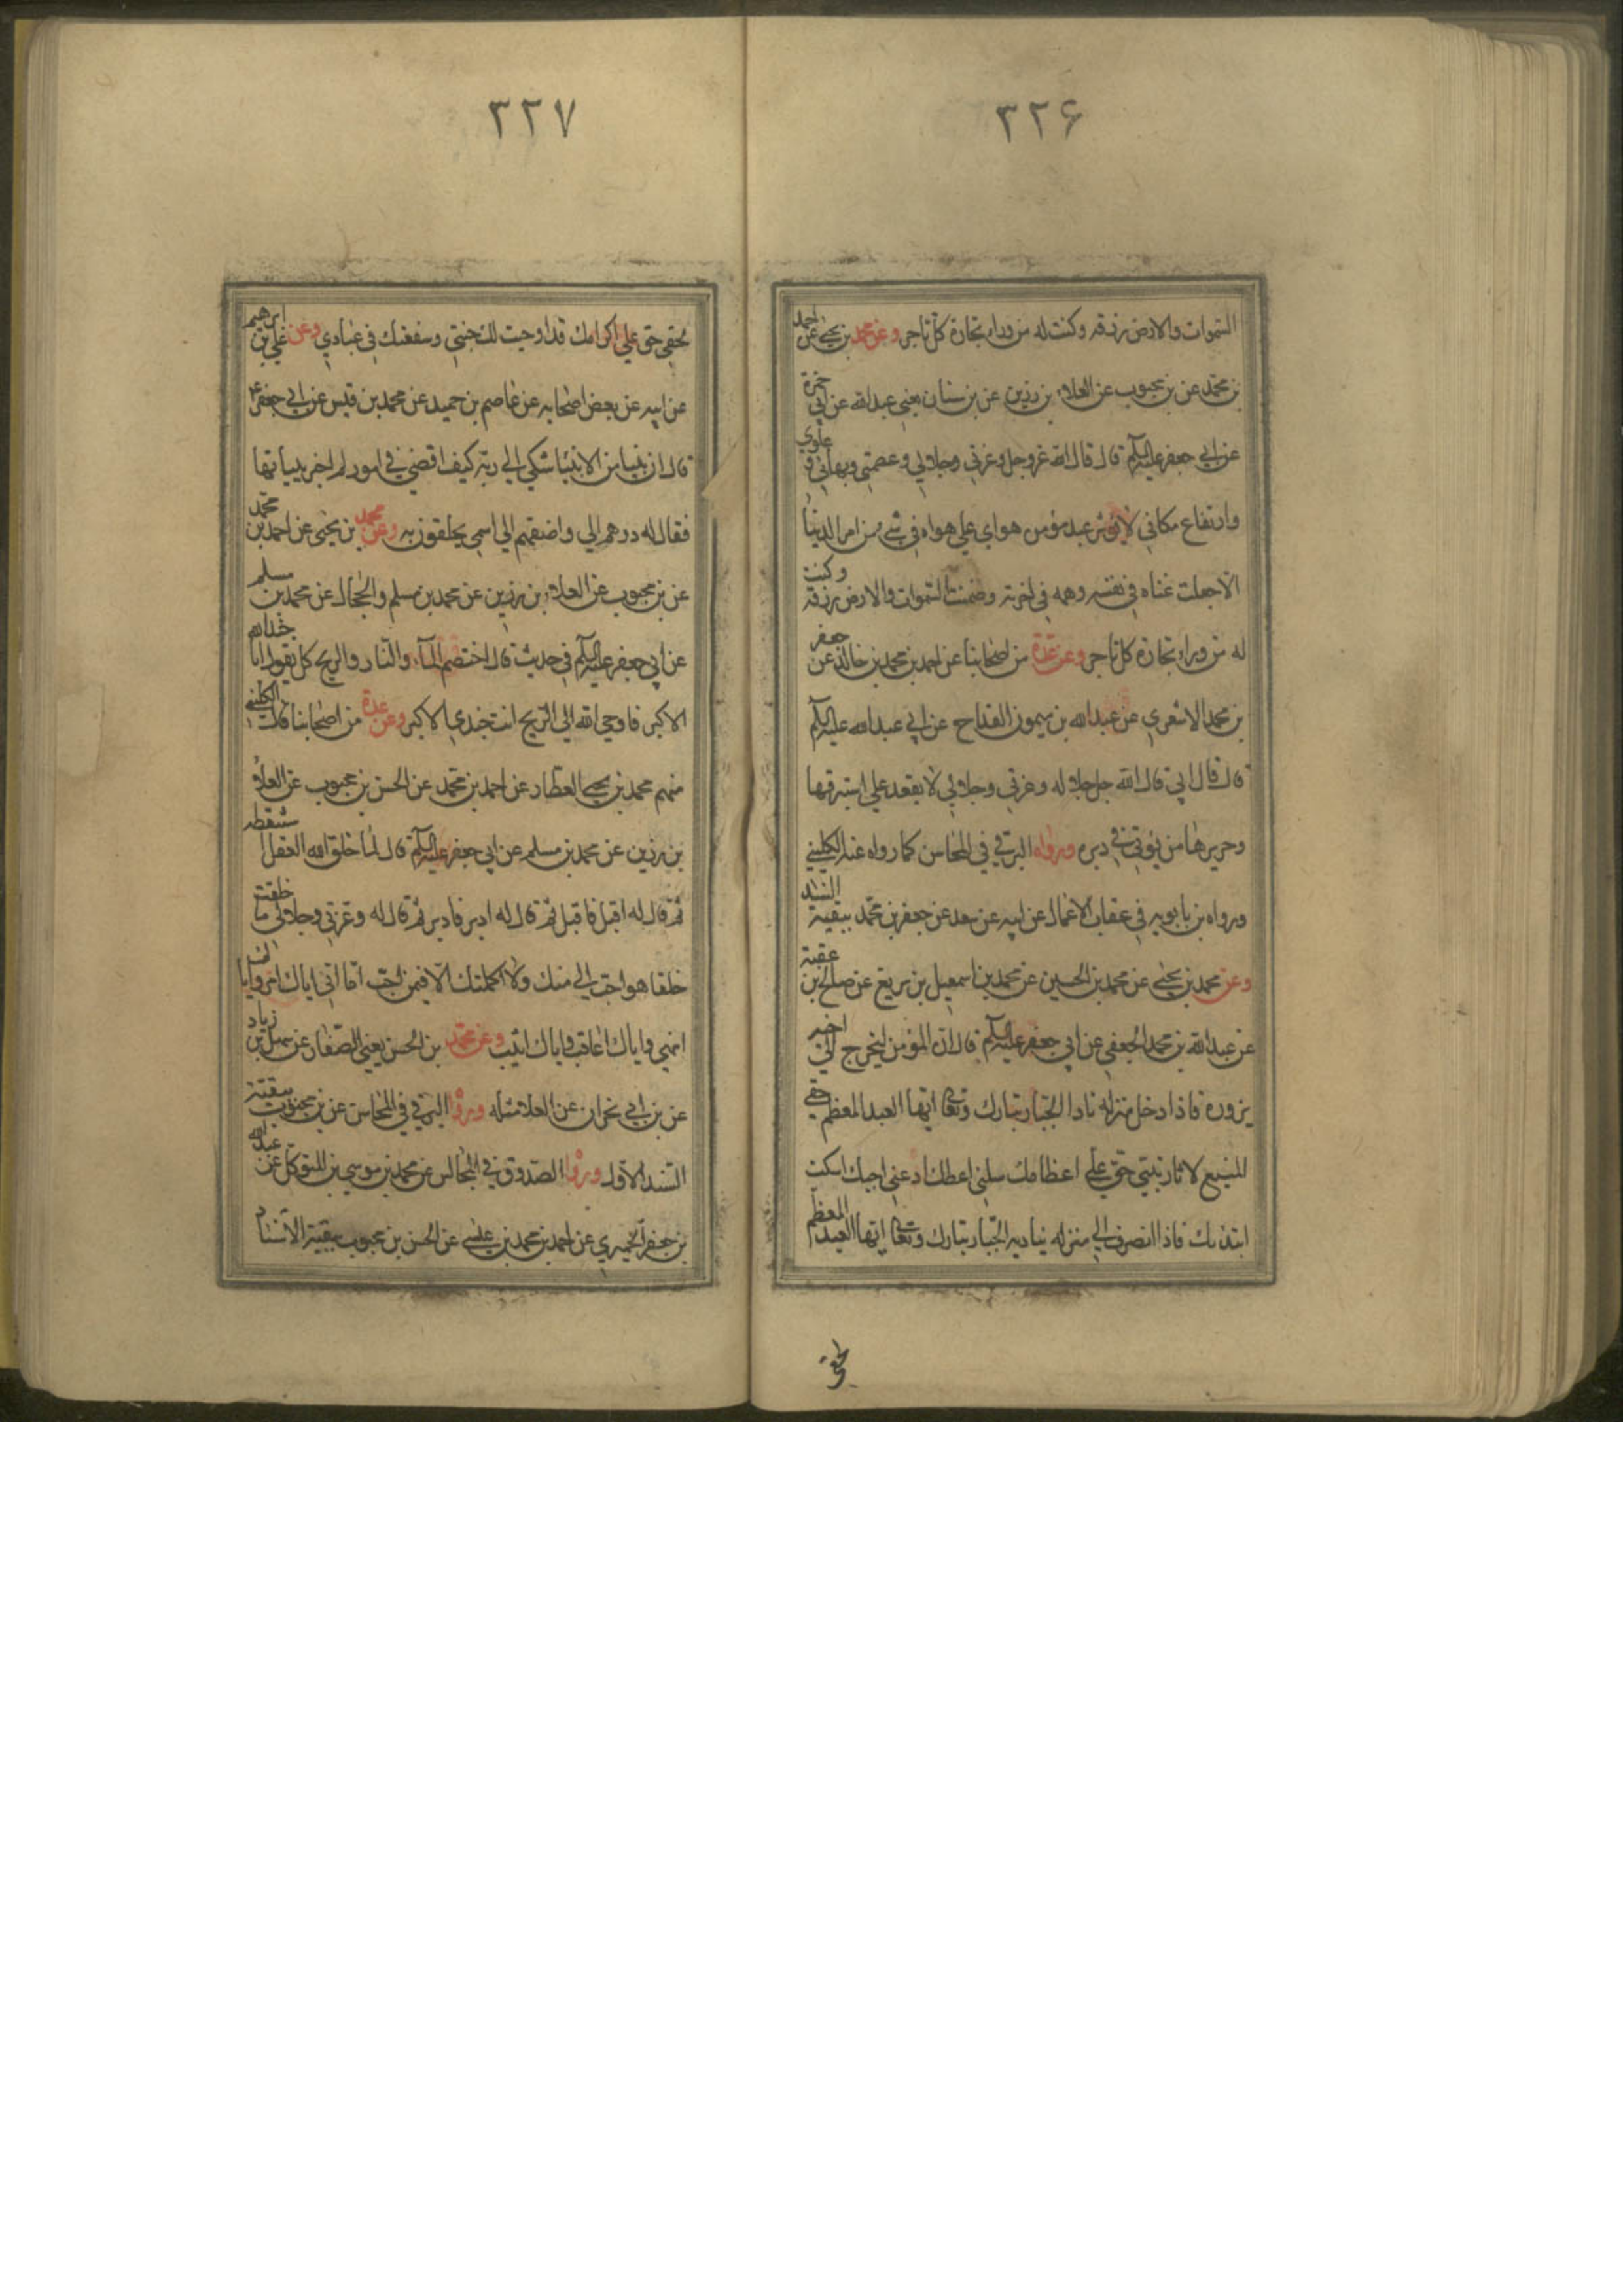 ٣٢۶
السموات والارض رزقه وكنت له من وراء تجارة كل تاجر وعن محمد بن يحيى عن احمد
بن محمد عن بن محبوب عن العلاء بن رزين عن بن سنان يعني عبدالله عن ابي حمزة
عن ابي جعفر عليه السلم قال قال الله عز وجل وعزتي وجلالي وعظمتي وبهائي وعلوي
وارتفاع مكاني لا يؤثر عبد مؤمن هواي علي هواه في شئ من امر الدنيا
الا جعلت غناه في نفسه وهمه في اخرته وضمنت السموات والارض رزقه وكنت
له من وراء تجارة كل تاجر وعن عدة من اصحابنا عن احمد بن محمد بن خالد عن جعفر
بن محمد الاشعري عن عبدالله بن ميمون القداح عن ابي عبدالله عليه السلم
قال قال ابي قال الله جل جلاله وعزتي وجلالي لا يقعد علي استبرقها
وحريرها من يؤتي في دبره ورواه البرقي في المحاسن كما رواه عنه الكليني
ورواه بن بابويه في عقاب الاعمال عن ابيه عن سعد عن جعفر بن محمد ببقية السند
وعن محمد بن يحيى عن محمد بن الحسين عن محمد بن اسمعيل بن بزيع عن صالح بن عقبة
عن عبدالله بن محمد الجعفي عن ابي جعفر عليه السلم قال ان المؤمن ليخرج الي اخيه
يزوره فاذا دخل منزله نادا الجبار تبارك وتعالى ايها العبد المعظم لحقي
المتبع لاثار نبيي حق علي اعظامك سلني اعطك ادعني اجبك اسكت
ابتدئك فاذا انصرف الي منزله يناديه الجبار تبارك وتعالى ايها العبد المعظم
لحقي
٣٢٧
لحقي حق علي اكرامك قد اوجبت لك جنتي وشفعتك في عبادي وعن علي بن ابرهيم
عن ابيه عن بعض اصحابه عن عاصم بن حميد عن محمد بن قيس عن ابي جعفر ع
قال ان نبيا من الانبيا شكى الي ربه كيف اقضي في امور لم اخبر ببيانها
فقال له ردهم الي واضفهم الي اسمي يحلفون به وعن محمد بن يحيى عن احمد بن محمد
عن بن محبوب عن العلاء بن رزين عن محمد بن مسلم والحجال عن محمد بن مسلم
عن ابي جعفر عليه السلم في حديث قال اختصم الماء والنار والريح كل يقول انا جند الله
الاكبر فاوحي الله الي الريح انت جندي الاكبر وعن عدة من اصحابنا قال الكليني
منهم محمد بن يحيى العطار عن احمد بن محمد عن الحسن بن محبوب عن العلاء
بن رزين عن محمد بن مسلم عن ابي جعفر عليه السلم قال لما خلق الله العقل استنطقه
ثم قال له اقبل فاقبل ثم قال له ادبر فادبر ثم قال له وعزتي وجلالي ما خلقت
خلقا هو احب الي منك ولا اكملتك الا فيمن احب اما اني اياك امر وايا
انهي واياك اعاقب واياك اثيب وعن محمد بن الحسن يعني الصفار عن سهل بن زياد
عن بن ابي نجران عن العلا مثله وروا البرقي في المحاسن عن بن محبوب ببقية
السند الاول وروا الصدوق في المجالس عن محمد بن موسي بن المتوكل عن عبدالله
بن جعفر الحميري عن احمد بن محمد بن عيسي عن الحسن بن محبوب ببقية الاسناد